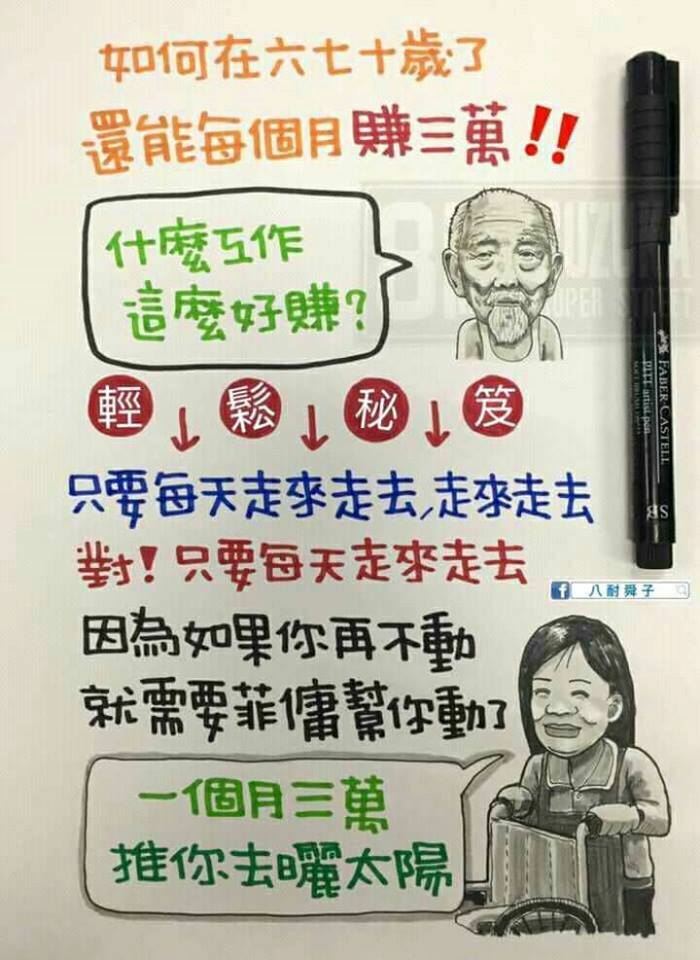 如何在六七十歲了
還能每個月賺三萬!!
什麼工作
這麼好賺?
輕鬆秘笈
只要每天走來走去,走來走去
對!只要每天走來走去
八耐舜子
因為如果你再不動
就需要菲傭幫你動了
一個月三萬
推你去曬太陽
FABER-CASTELL
PITT artist pen
SB